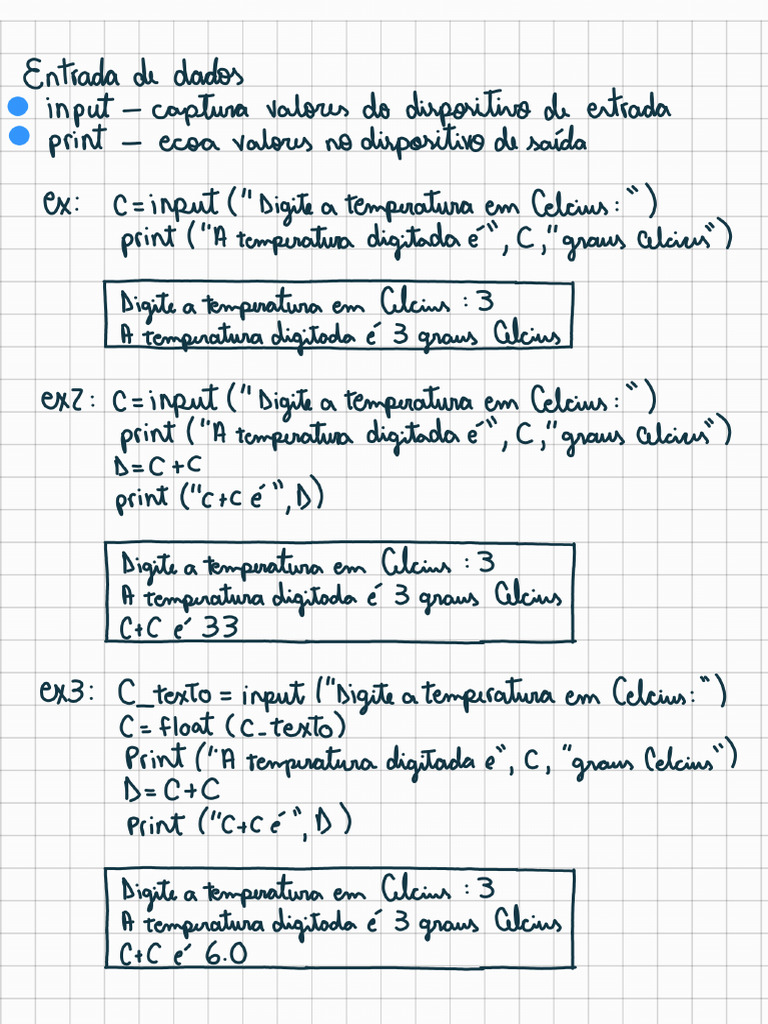 Entrada de dados
input – captura valores do dispositivo de entrada
print – ecoa valores no dispositivo de saída
ex: C=input ("Digite a temperatura em Celcius: ")
print ("A temperatura digitada é", C,"graus Celcius")
Digite a temperatura em Celcius : 3
A temperatura digitada é 3 graus Celcius
ex2: C=input ("Digite a temperatura em Celcius: ")
print ("A temperatura digitada é", C,"graus Celcius")
D=C+C
print ("C+C é ", D)
Digite a temperatura em Celcius : 3
A temperatura digitada é 3 graus Celcius
C+C é 33
ex3: C_texto = input ("Digite a temperatura em Celcius: ")
C= float (C_texto)
Print ("A temperatura digitada e", C, "graus Celcius")
D= C+C
Print ("C+C é ", D)
Digite a temperatura em Celcius : 3
A temperatura digitada é 3 graus Celcius
C+C é 6.0